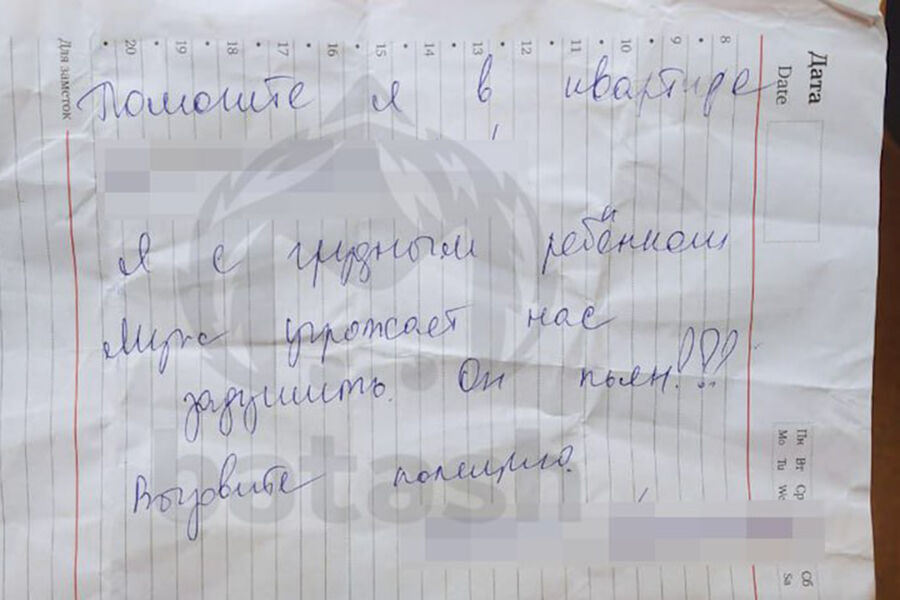 Дата
Date
8 • 9 • 10 • 11 • 12 • 13 • 14 • 15 • 16 • 17 • 18 • 19 • 20 •
Для заметок
Помогите я в квартире
Я с грудным ребёнком
Муж угрожает нас
задушить. Он пьян!!!
Вызовите полицию.
Пн Вт Ср
Mo Tu We
Сб
Sa
batash